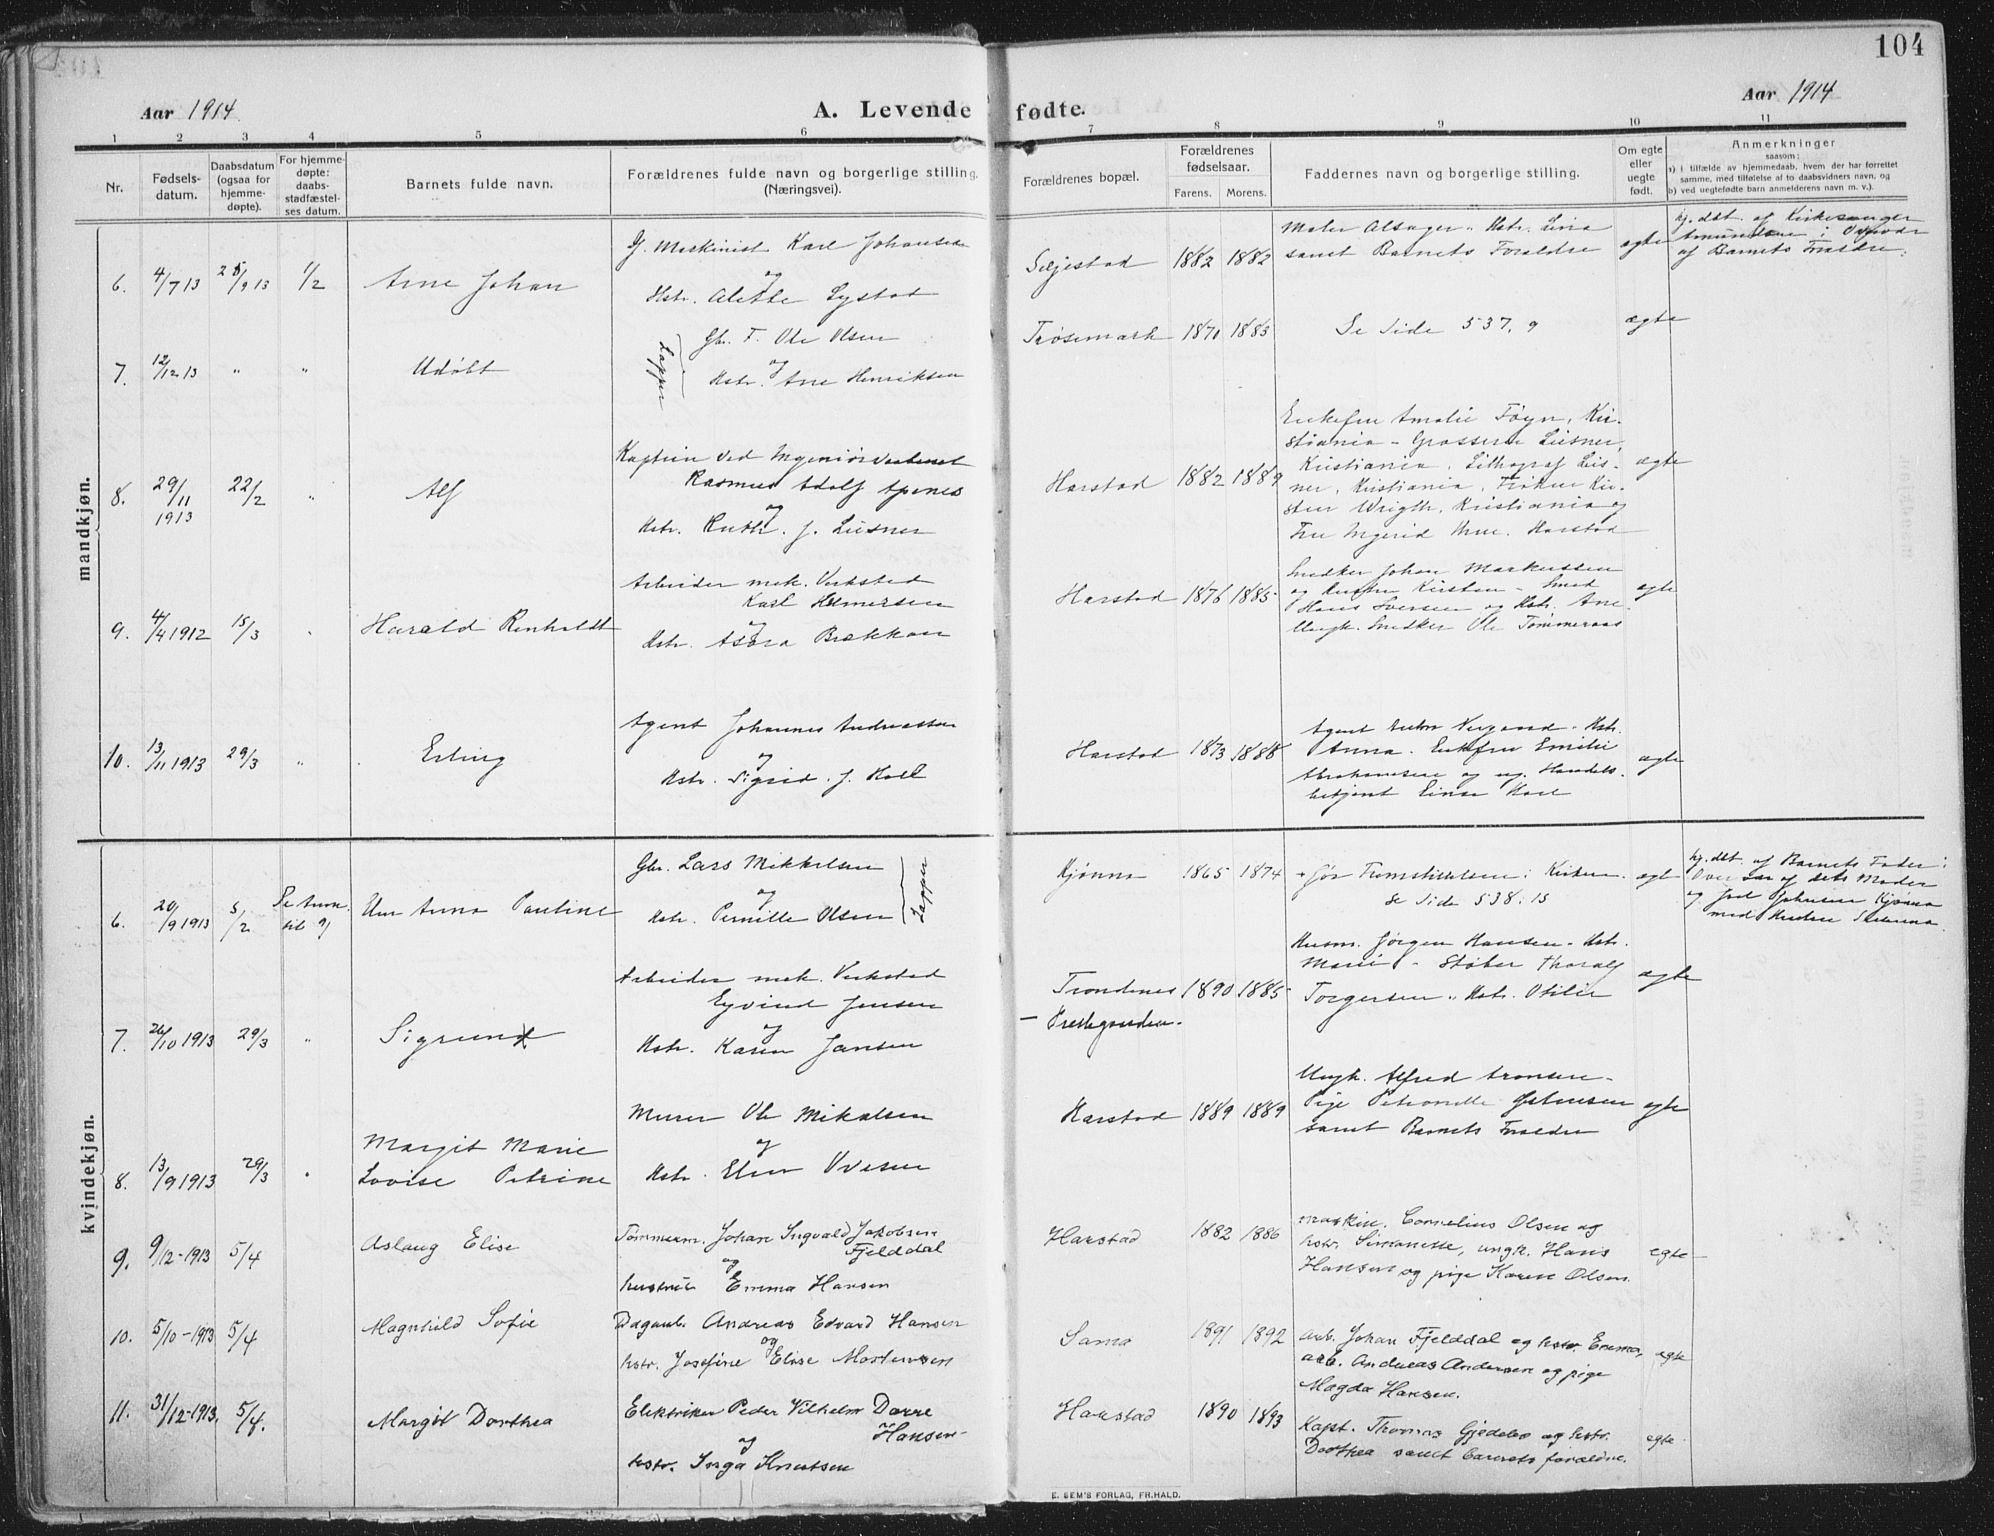 104
Aar 1914
A. Levende fødte.
Aar 1914
1 2 3 4 5 6 7 8 9 10 11
Nr.
Fødselsdatum.
Daabsdatum (ogsaa for hjemmedøpte).
For hjemmedøpte: daabsstadfæstelses datum.
Barnets fulde navn.
Forældrenes fulde navn og borgerlige stilling.
(Næringsvei).
Forældrenes bopæl.
Forældrenes fødselsaar.
Farens. Morens.
Faddernes navn og borgerlige stilling.
Om egte eller uegte født.
Anmerkninger
saasom:
a) i tilfælde av hjemmedaab, hvem der har forrettet
samme, med tilføielse af to daabsvidners navn, og
b) ved uegtefødte barn anmelderens navn m. v.).
mandkjøn.
6. 4/7 13 25/9 13 1/2 Arne Johan
G. Maskinist Karl Johansen
og
Hstr. Alette Lystad
Seljestad 1882 1882
Maler Alsager. Hstr. Lina
samt Barnets Forældre
egte
hj. døt. af Kirkesanger
Amundsen i
af Barnets Forældre.
7. 12/12 13 " " Udøbt
Gbr. F. Ole Olsen
og
Hstr. Ane Henriksen
Lapper
Trøsemark 1871 1883
Se Side 537, 9
egte
8. 29/11 1913 22/2 " Alf
Kaptein ved Ingeniørvæbnet
Rasmus Adolf Apenes
og
Hstr. Ruth. J. Lüsner
Harstad 1882 1889
Enkefru Amalie Föyn, Kri-
stiania - Grosserer Lüsner,
Kristiania. Lithograf Lüs-
ner, Kristiania, Frøken Kir-
sten Wrigth, Kristiania og
Fru Ingerid Harstad
egte
9. 4/4 1912 15/3 " Harald Renholdt
Arbeider mek. Verkstad
Karl Helmersen
og
Hstr. Asora Brækkan
Harstad 1876 1885
Snedker Johan Markussen
og Hustru Kirsten - Smed
Hans Iversen og Hstr. Ane.
Ungk. Snedker Ole Tømmeraas
egte
10. 13/11 1913 29/3 " Erling
Agent Johannes Andreassen
og
Hstr. Sigrid. J. Hoel
Harstad 1873 1888
Agent Hstr.
Anna. Enkefru Emilie
Abrahamsen og ug. Handels-
betjent Einar Hoel
egte
kvindekjøn.
6. 20/9 1913 5/2 Se Anm. til 9 Unn Anna Pauline
Gbr. Lars Mikkelsen
og
Hstr. Pernille Olsen
Lapper
Kjønna 1865 1874
+ før Fremstillelsen i Kirken.
se Side 538. 15
egte
hj. døt. af Barnets Fader i
Overvær af dets Moder
og Johansen Kjønna
med Hustru
7. 26/10 1913 29/3 " Sigrund
Arbeider mek. Verkstad
Eyvind Jensen
og
Hstr. Karen Jansen
Trondenes
- Prestegaarden.
1890 1885
Husm. Jørgen Hansen. Hstr.
Marie - Støber Thoralf
Torgersen " Hstr. Otilie
egte
8. 13/9 1913 29/3 " Margit Marie
Lovise Petrine
Murer Ole Mikalsen
og
Hstr. Elen Ovesen
Harstad 1889 1889
Ungk. Alfred Aronsen -
Pige Petronelle Østensen
samt Barnets Forældre
egte
9. 9/12-1913 5/4 Aslaug Elise
Tømmerm. Johan Ingvald Jakobsen
Fjelddal
og
hustru Emma Hansen
Harstad 1882 1886
Maskin. Cornelius Olsen og
hstr. Simonette, ungk. Hans
Hansen og pige Karen Olsen.
egte
10. 5/10-1913 5/4 Magnhild Sofie
Dagarb. Andreas Edvard Hansen
og
hstr. Josefine Elise Mortensen
Sama 1891 1892
arb. Johan Fjelddal og hstr Emma,
arb. Andreas Andersen og pige
Magda Hansen.
egte
11. 31/12-1913. 5/4. Margit Dorthea
Elektriker Peder Vilhelm Dorre
Hansen
og
hstr. Inga Knutsen
Harstad 1890 1893
Kapt. Thomas Gjedebo og hstr.
Dorthea samt barnets forældre.
egte.
E. SEM'S FORLAG, FR.HALD.